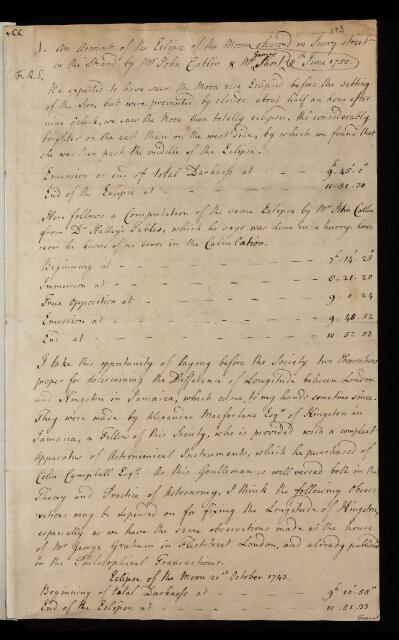 173
1. An Account of the Eclipse of the Moon observed in Surry Street
in the Strand by Mr. John Catlin & Mr. James Short, 8th June 1750
F.R.S.
We expected to have seen the Moon rise Eclipsed before the setting
of the Sun, but were prevented by clouds. about half an hour after
nine o'clock, we saw the Moon then totally eclipsed, tho considerably
brighter on the east than on the west side, by which we found that
she was then past the middle of the Eclipse.
Emersion or end of total Darkness at - - - 9h. 45'. 0"
End of the Eclipse at - - - 10. 51. 30
Here follows a Computation of the same Eclipse by Mr. John Catlin
from Dr. Halley's Tables, which he says was done in a hurry, how-
ever he knows of no error in the Calculation.
Beginning at - - - 7h. 14'. 25"
Immersion at - - - 8. 21. 20
True Opposition at - - - 9. 0. 24
Emersion at - - - 9. 48. 52
End at - - - 10. 52. 53
I take this opportunity of laying before the Society two Observations
proper for determining the Difference of Longitude between London
and Kingston in Jamaica, which came to my hands sometime since.
They were made by Alexander Macfarlane Esqr. of Kingston in
Jamaica, a Fellow of this Society, who is provided with a compleat
Apparatus of Astronomical Instruments, which he purchased of
Colin Campbell Esqr. As this Gentleman is well versed both in the
Theory and Practice of Astronomy, I think the following Obser-
vations may be depended on for fixing the Longitude of Kingston,
especially as we have the same observations made at the house
of Mr. George Graham in Fleetstreet London, and already published
in the Philosophical Transactions.
Eclipse of the Moon 21st October 1743.
Beginning of total Darkness at - - - 9h. 10'. 58"
End of the Eclipse at - - - 10. 51. 33